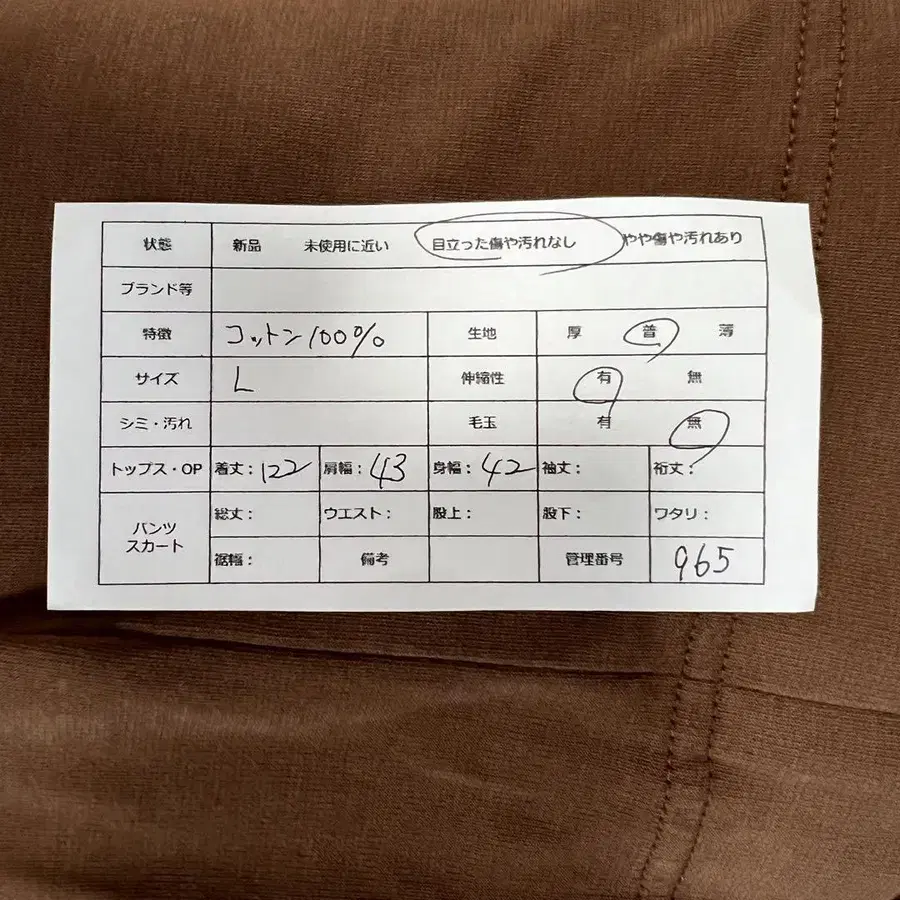 状態 新品 未使用に近い 目立った傷や汚れなし やや傷や汚れあり
ブランド等
特徴 コットン100% 生地 厚 普 薄
サイズ L 伸縮性 有 無
シミ・汚れ 毛玉 有 無
トップス・OP 着丈：122 肩幅：43 身幅：42 袖丈： 裄丈：
パンツ スカート 総丈： ウエスト： 股上： 股下： ワタリ：
裾幅： 備考 管理番号 965